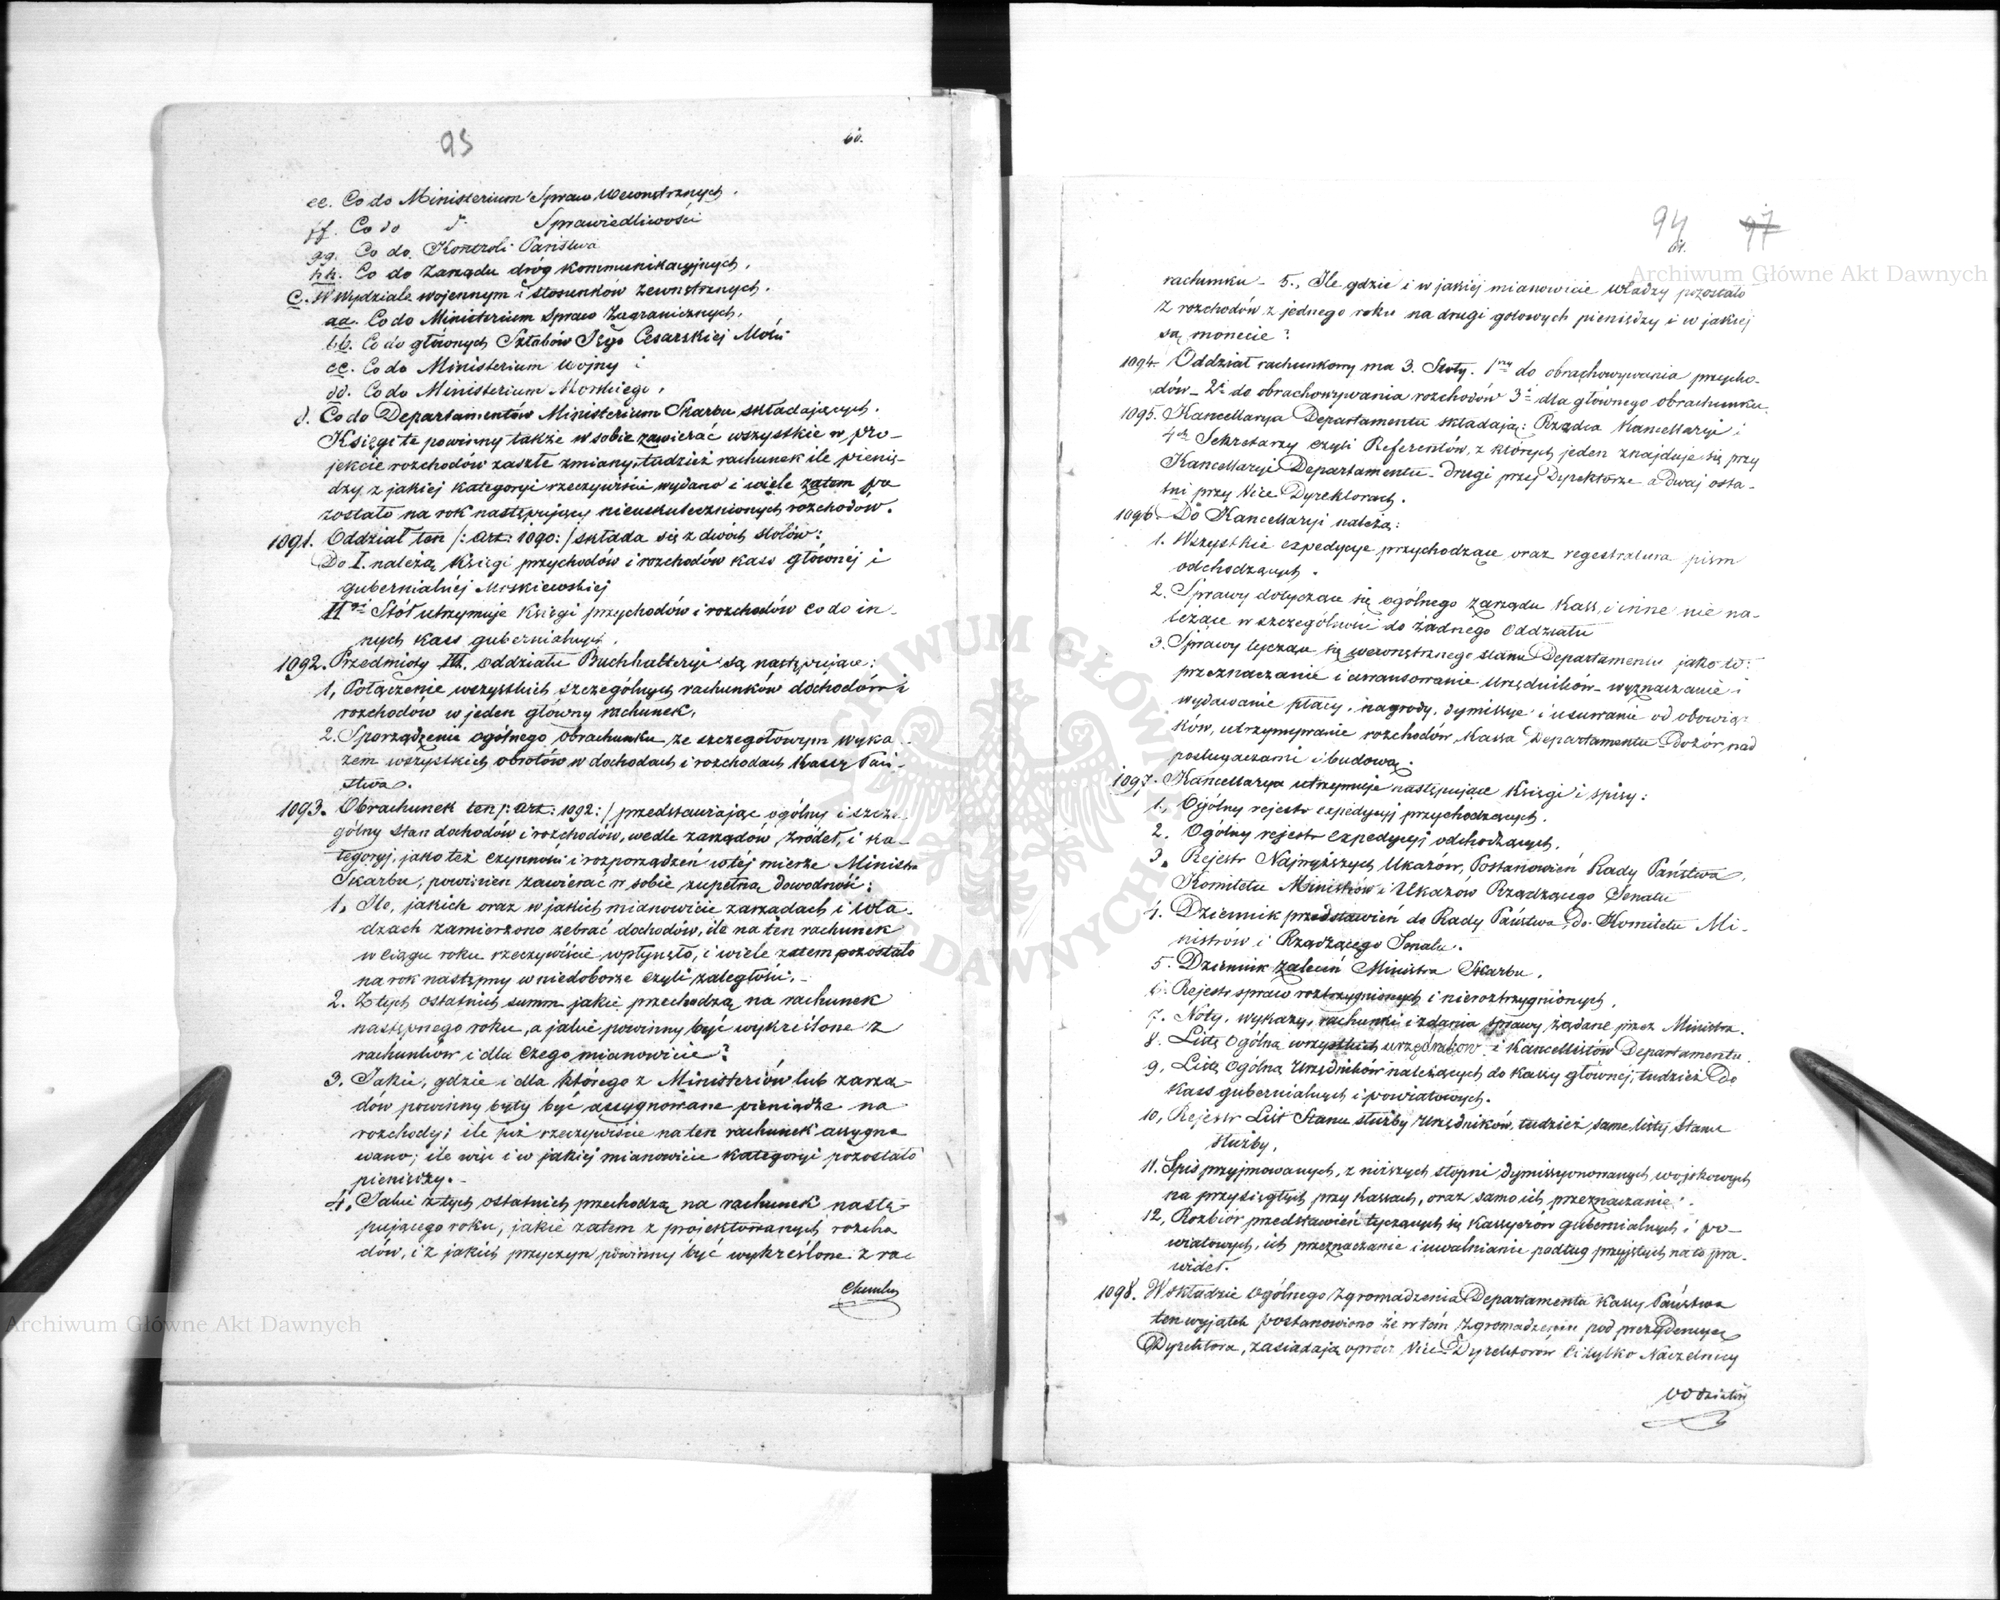 93
60.
ee. Co do Ministerium Spraw Wewnętrznych.
ff. Co do d⁰ Sprawiedliwości
gg. Co do Kontroli Państwa
hh. Co do Zarządu dróg kommunikacyjnych.
C. W Wydziale wojennym i stosunków zewnętrznych.
aa. Co do Ministerium Spraw Zagranicznych.
bb. Co do głównych Sztabów Jego Cesarskiej Mości
cc. Co do Ministerium Wojny i
dd. Co do Ministerium Morskiego.
d. Co do Departamentów Ministerium Skarbu składających.
Księgi te powinny także w sobie zawierać wszystkie w pro-
jekcie rozchodów zaszłe zmiany, tudzież rachunek ile pienię-
dzy z jakiej kategoryi rzeczywiście wydano i wiele zatem po
zostało na rok następujący nieuskutecznionych rozchodów.
1091. Oddział ten /: Art: 1090:/ składa się z dwóch stołów:
Do I. należą Księgi przychodów i rozchodów kass głównéj i
gubernialnéj Moskiewskiej
II^gi Stół utrzymuje Księgi przychodów i rozchodów co do in-
nych kass gubernialnych.
1092. Przedmioty III. oddziału Buchhalteryi są następujące:
1, Połączenie wszystkich szczególnych rachunków dochodów i
rozchodów w jeden główny rachunek.
2. Sporządzenie ogólnego obrachunku ze szczegółowym wyka-
zem wszystkich obrotów w dochodach i rozchodach Kassy Pań-
stwa.
1093. Obrachunek ten /: Art: 1092:/ przedstawiając ogólny i szcze-
gólny stan dochodów i rozchodów, wedle zarządów, źródeł, i ka-
tegoryj, jako też czynności i rozporządzeń w téj mierze Ministra
Skarbu, powinien zawierać w sobie zupełną dowodność:
1. Ile, jakich oraz w jakich mianowicie zarządach i wła-
dzach zamierzono zebrać dochodów, ile na ten rachunek
w ciągu roku rzeczywiście wpłynęło, i wiele zatem pozostało
na rok następny w niedoborze czyli zaległości.-
2. Z tych ostatnich summ jakie przechodzą na rachunek
następnego roku, a jakie powinny być wykreślone z
rachunków i dla czego mianowicie?
3. Jakie, gdzie i dla którego z Ministeriów lub zarzą-
dów powinny były być assygnowane pieniądze na
rozchody; ile już rzeczywiście na ten rachunek assygno
wano; ile więc i w jakiej mianowicie kategoryi pozostało
pieniędzy.-
4. Jakie z tych ostatnich przechodzą na rachunek nastę-
pującego roku, jakie zatem z projektowanych rozcho
dów, i z jakich przyczyn powinny być wykreślone z ra-
94 97
61.
rachunku - 5., Ile gdzie i w jakiej mianowicie władzy pozostało
z rozchodów z jednego roku na drugi gotowych pieniędzy i w jakiej
są monecie?
1094. Oddział rachunkowy ma 3. Stoły. 1^szy do obrachowywania przycho-
dów - 2^i do obrachowywania rozchodów 3^i dla głównego obrachunku.
1095. Kancellaryą Departamentu składają: Rządca Kancellaryi i
4^ch Sekretarzy czyli Referentów, z których jeden znajduje się przy
Kancellaryi Departamentu - drugi przy Dyrektorze a dwaj osta-
tni przy Vice Dyrektorach.
1096. Do Kancellaryi należą:
1. Wszystkie expedycye przychodzące oraz regestratura pism
odchodzących.
2. Sprawy dotyczące się ogólnego zarządu Kass, i inne nie na-
leżące w szczególności do żadnego Oddziału
3. Sprawy tyczące się wewnętrznego stanu Departamentu jako to:
przeznaczanie i awansowanie Urzędników - wyznaczanie i
wydawanie płacy, nagrody, dymissye i usuwanie od obowiąz-
ków, utrzymywanie rozchodów, Kassa Departamentu Dozór nad
posługaczami i budową.
1097. Kancellarya utrzymuje następujące Księgi i spisy:
1., Ogólny rejestr expedycyj przychodzących.
2. Ogólny rejestr expedycyj odchodzących.
3. Rejestr Najwyższych Ukazów, Postanowień Rady Państwa,
Komitetu Ministrów i Ukazów Rządzącego Senatu
4. Dziennik przedstawień do Rady Państwa, do Komitetu Mi-
nistrów i Rządzącego Senatu.
5. Dziennik zaleceń Ministra Skarbu.
6. Rejestr spraw roztrzygnionych i nieroztrzygnionych.
7. Noty, wykazy, rachunki i zdania sprawy żądane przez Ministra.
8. Listę Ogólną wszystkich urzędników i Kancellistów Departamentu.
9, Listę Ogólną Urzędników należących do Kassy głównej, tudzież do
Kass gubernialnych i powiatowych.
10, Rejestr List Stanu służby Urzędników, tudzież same listy Stanu
służby,
11. Spis przyjmowanych, z niższych stopni dymissyonowanych wojskowych
na przysięgłych przy Kassach, oraz samo ich przeznaczanie.
12, Rozbiór przedstawień tyczących się Kassyerów gubernialnych i po-
wiatowych, ich przeznaczanie i uwalnianie podług przyjętych na to pra-
wideł.
1098. W składzie Ogólnego Zgromadzenia Departamentu Kassy Państwa
ten wyjątek postanowiono że w tém Zgromadzeniu pod prezydencyą
Dyrektora, zasiadają oprócz Vice Dyrektorów ci tylko Naczelnicy
Archiwum Główne Akt Dawnych
Archiwum Główne Akt Dawnych
ARCHIWUM GŁÓWNE AKT DAWNYCH